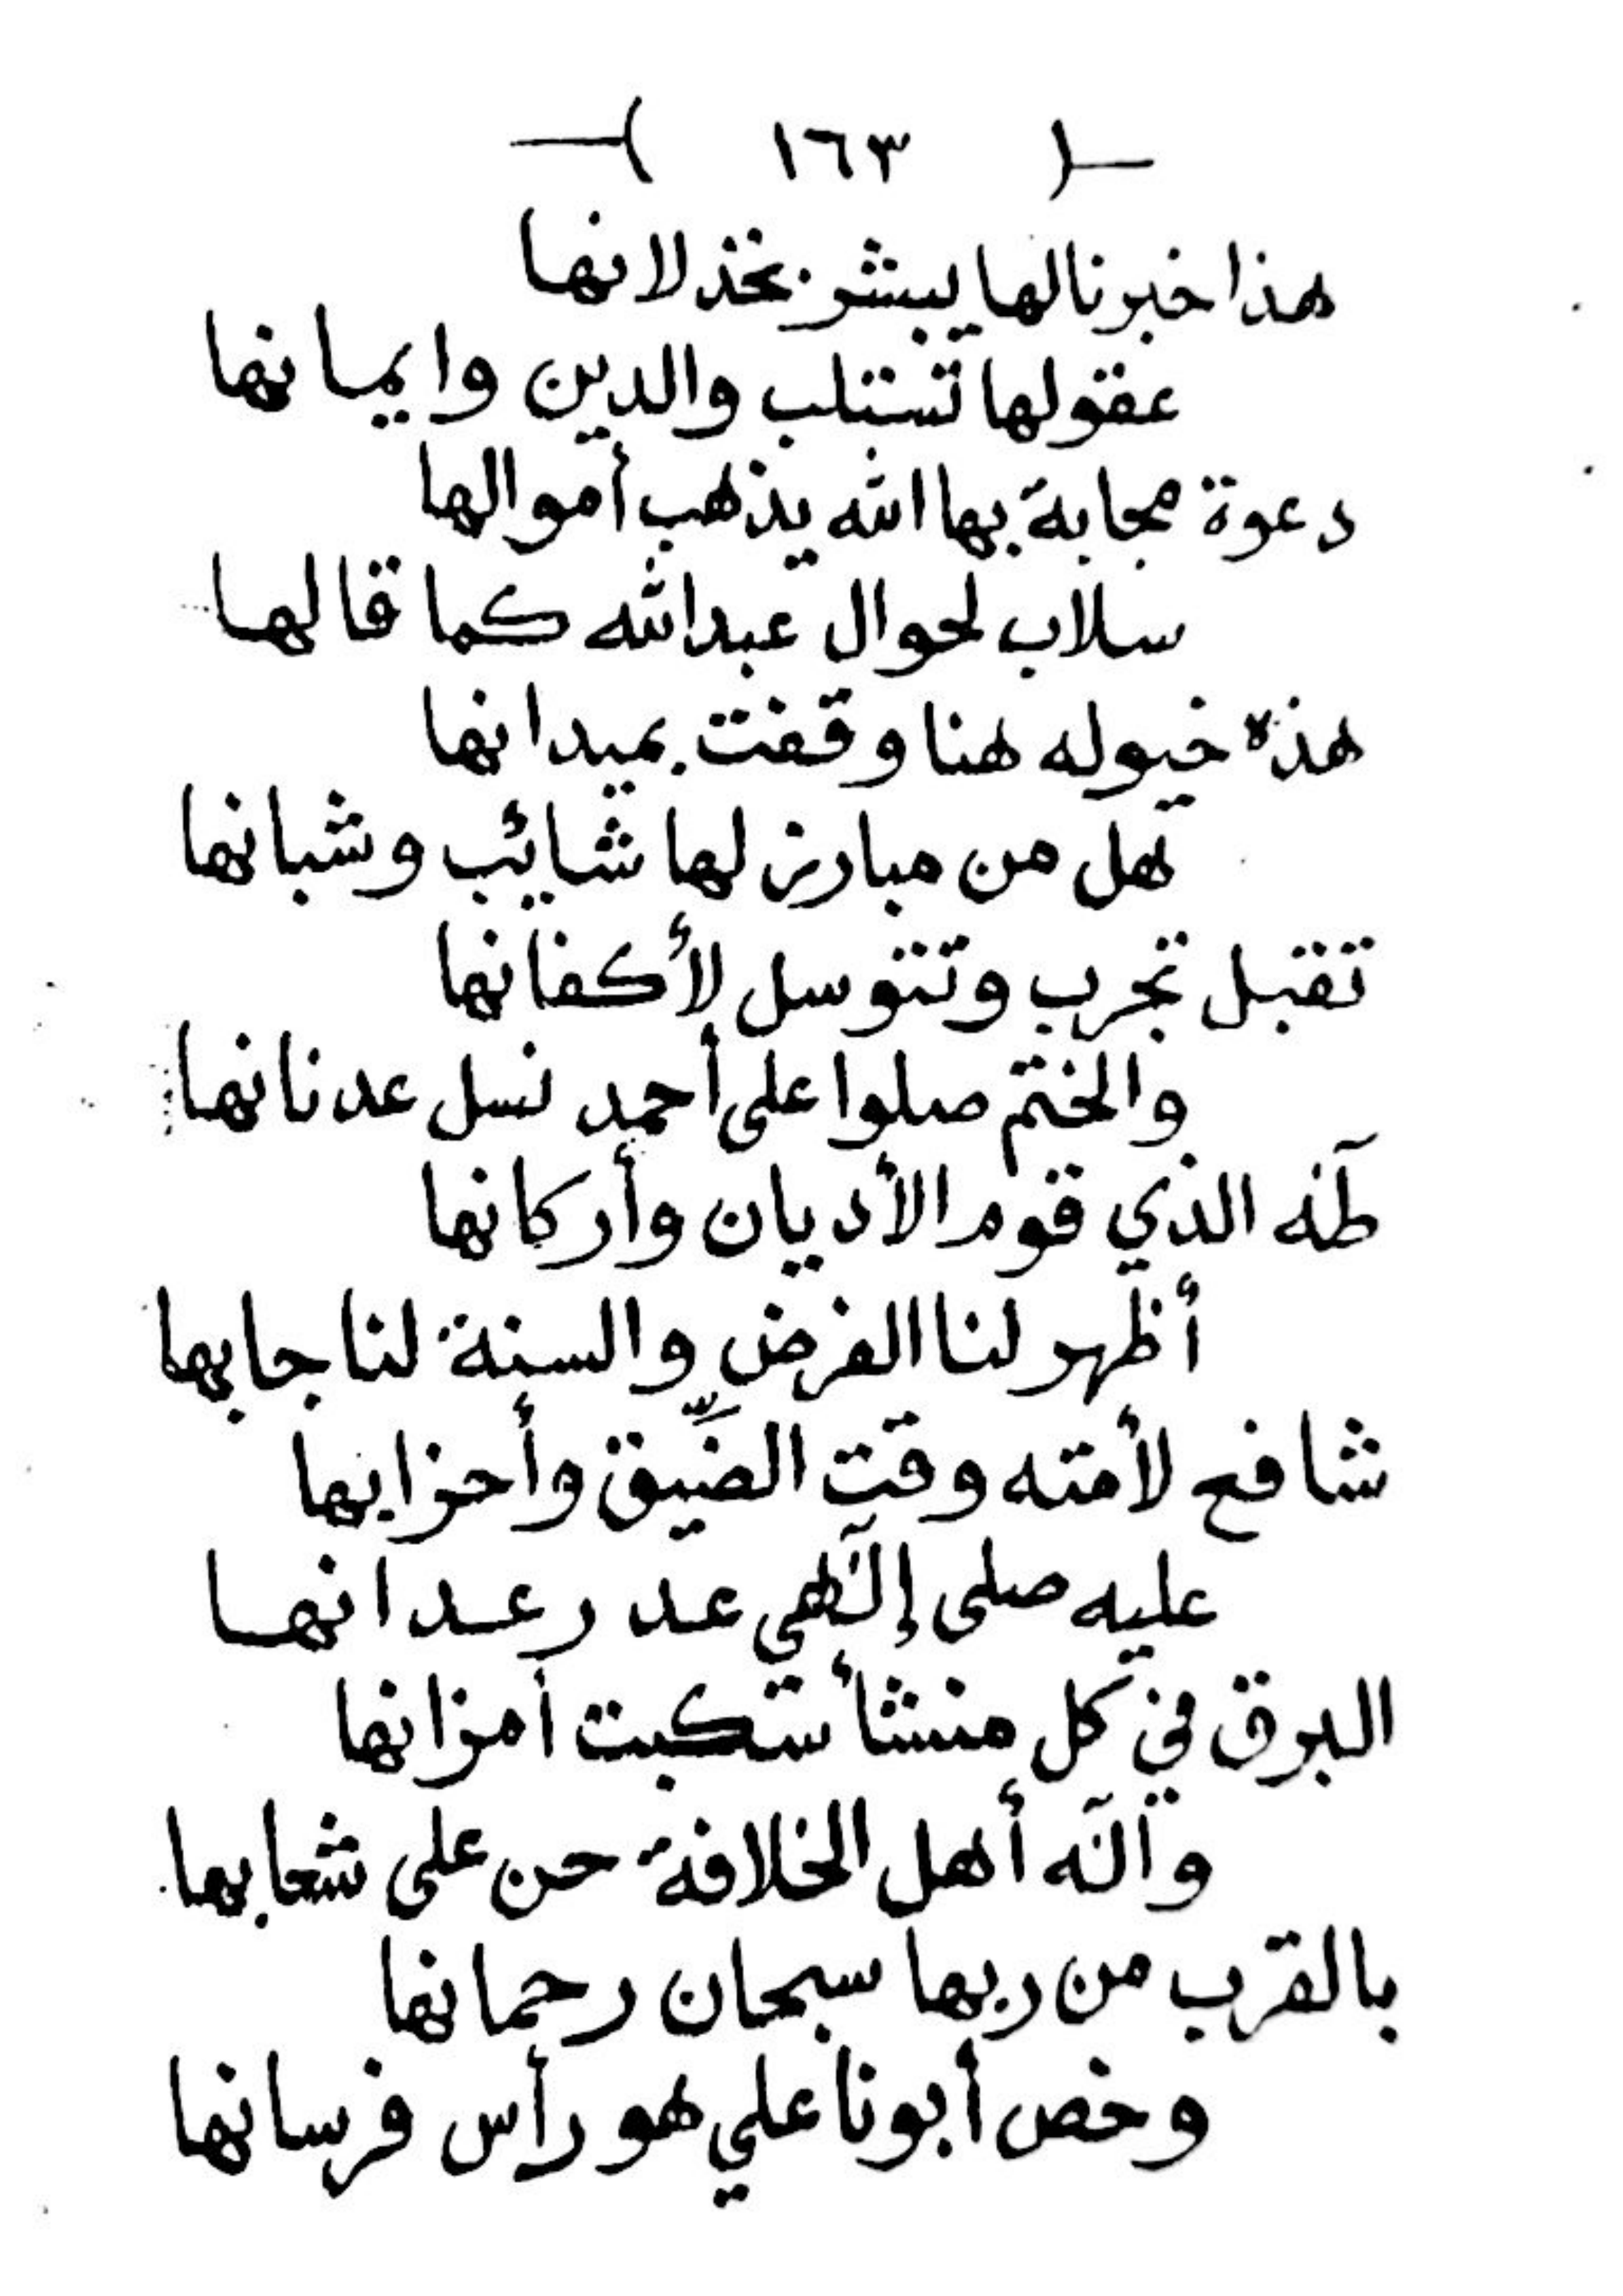 ( ١٦٣ )
هذا خبرنا لها يبشر بخذلانها
عقولها تستلب والدين وايمانها
دعوة مجابة بها الله يذهب أموالها
سلاب لحوال عبدالله كما قالها
هذه خيوله هنا وقفت بميدانها
هل من مبارز لها شائب وشبانها
تقبل تجرب وتتوسل لأكفانها
والختم صلوا على أحمد نسل عدنانها
طٰه الذي قوم الأديان وأركانها
أظهر لنا الفرض والسنة لنا جابها
شافع لأمته وقت الضِّيق وأحزابها
عليه صلى إلٰهي عد رعدانها
البرق في كل منشأ سكبت أمزانها
وآله أهل الخلافة حن على شعابها
بالقرب من ربها سبحان رحمانها
وخص أبونا علي هو رأس فرسانها